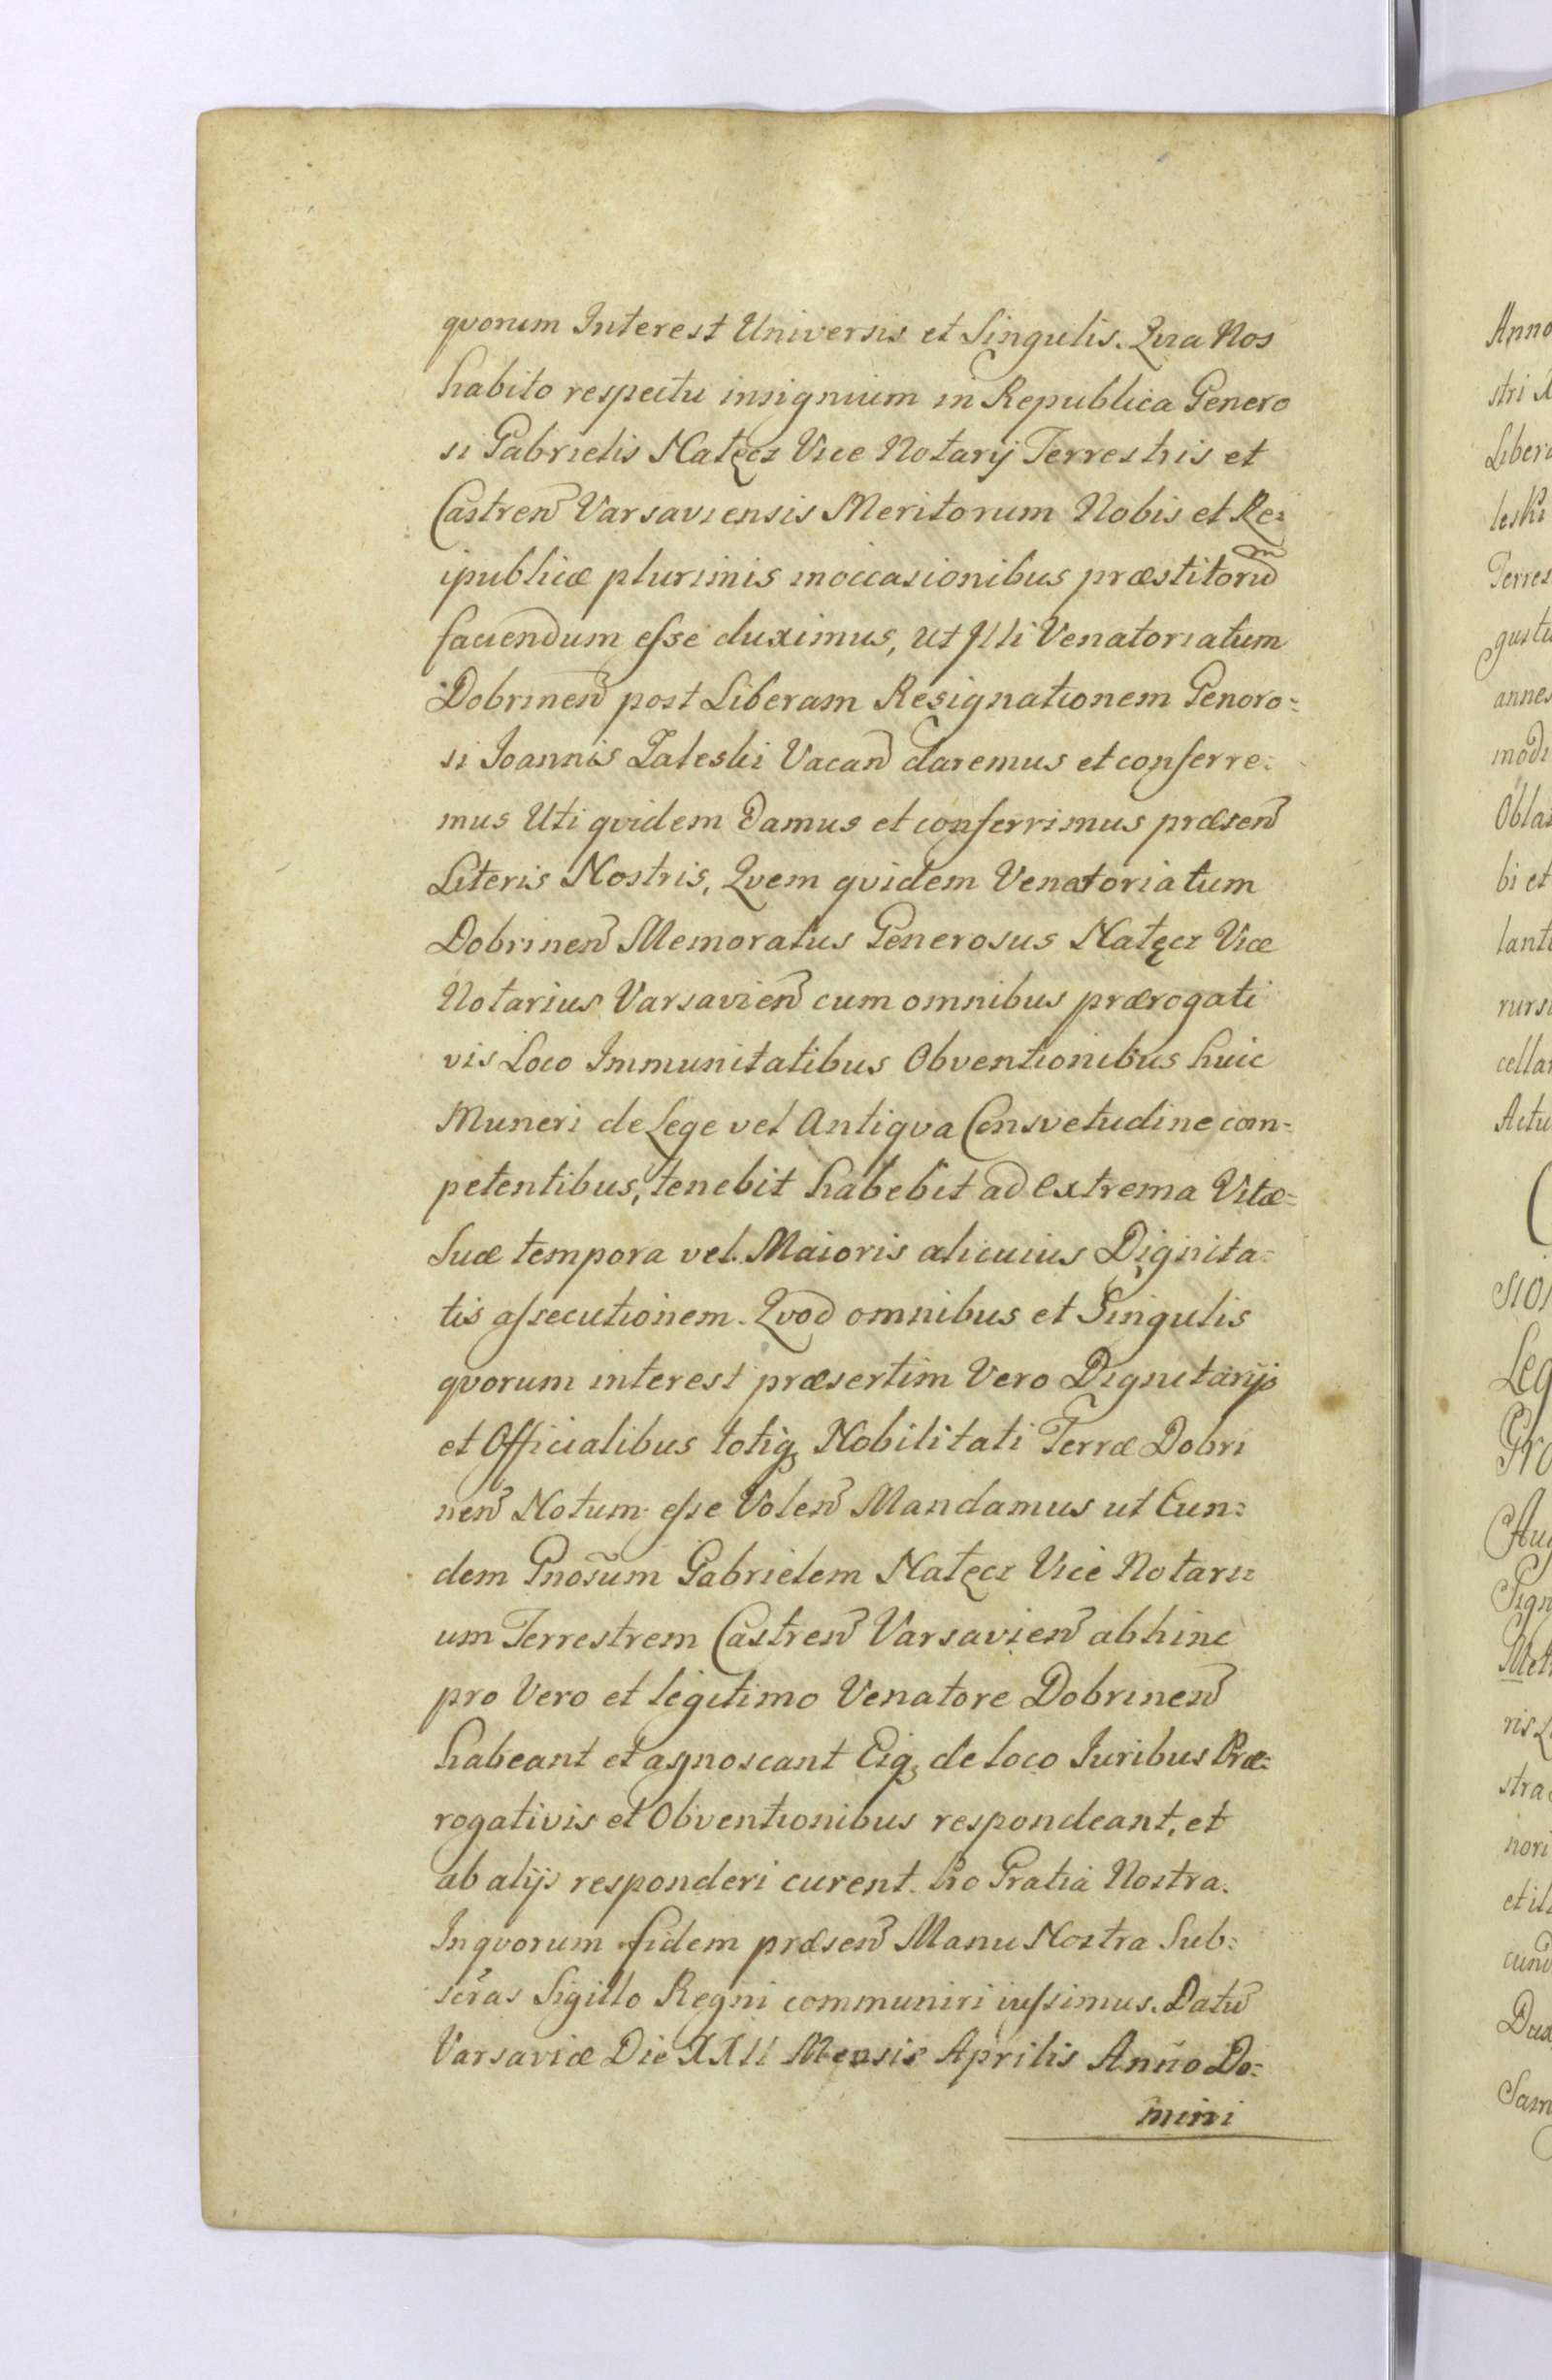 quorum Interest Universis et Singulis. Quia Nos
habito respectu insignium in Republica Genero
si Gabrielis Natęcz Vice Notarij Terrestris et
Castren̄ Varsaviensis Meritorum Nobis et Re=
ipublicæ plurimis inoccasionibus præstitorum̄
faciendum eſse duximus, ut Illi Venatoriatum
Dobrinen̄ post Liberam Resignationem Genoro=
si Joannis Zaleski Vacan̄ daremus et conferre=
mus Uti qvidem Damus et conferrimus præsen̄
Literis Nostris, Qvem qvidem Venatoriatum
Dobrinen̄ Memoratus Generosus Natęcz Vice
Notarius Varsavien̄ cum omnibus prærogati
vis Loco Immunitatibus Obventionibus huic
Muneri de Lege vel Antiqva Consvetudine com=
petentibus, tenebit habebit ad extrema Vitæ=
Suæ tempora vel Maioris alicuius Dignita=
tis aſsecutionem. Qvod omnibus et Singulis
qvorum interest præsertim Vero Dignitarijs
et Officialibus totiq₃ Nobilitati Terræ Dobri
nen̄ Notum eſse Volen̄ Mandamus ut Eun=
dem Gnosūm Gabrielem Natęcz Vice Notari=
um Terrestrem Castren̄ Varsavien̄ abhinc
pro Vero et legitimo Venatore Dobrinen̄
habeant et agnoscant Eiq₃ de loco Iuribus Præ=
rogativis et Obventionibus respondeant, et
ab alijs responderi curent. Pro Gratia Nostra.
Inqvorum fidem præsen̄ Manu Nostra Sub=
scr̄as Sigillo Regni communiri iuſsimus. Datū
Varsaviæ Die XXII Mensis Aprilis Anno Do=
mini
Anno
stri
Libera
leski
Terres
gustu
annes
modi
Obla
bi et
lant
rurs
cella
Actu
sio
Leg
Gro
Au
Sign
Met
ris
stra
nori
et il
cun̄
Dux
Sam